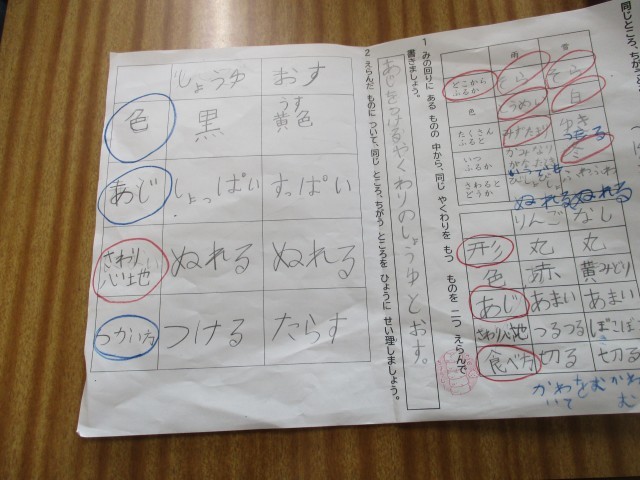 同じところ、ちが
雨
雪
どこから
ふるか
そら
そら
色
白
たくさん
ふると
ゆき
つもる
いつ
ふるか
冬
さわると
どうか
ぬれる
ぬれる
りんご
なし
形
丸
丸
色
赤
黄みどり
あじ
あまい
あまい
さわり心地
つるつる
食べ方
切る
切る
1 みの回りに ある ものの 中から、同じ やくわりを もつ ものを 二つ えらんで
書きましょう。
あじをつけるやくわりのしょうゆとおす。
2 えらんだ ものに ついて、同じ ところ、ちがう ところを ひょうに せい理しましょう。
しょうゆ
おす
色
黒
うす
黄色
あじ
しょっぱい
すっぱい
さわり
心地
ぬれる
ぬれる
つかい方
つける
たらす